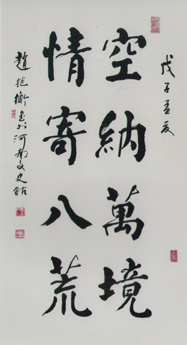 戊子孟夏
空納萬境
情寄八荒
趙抱衡書於河南文史館